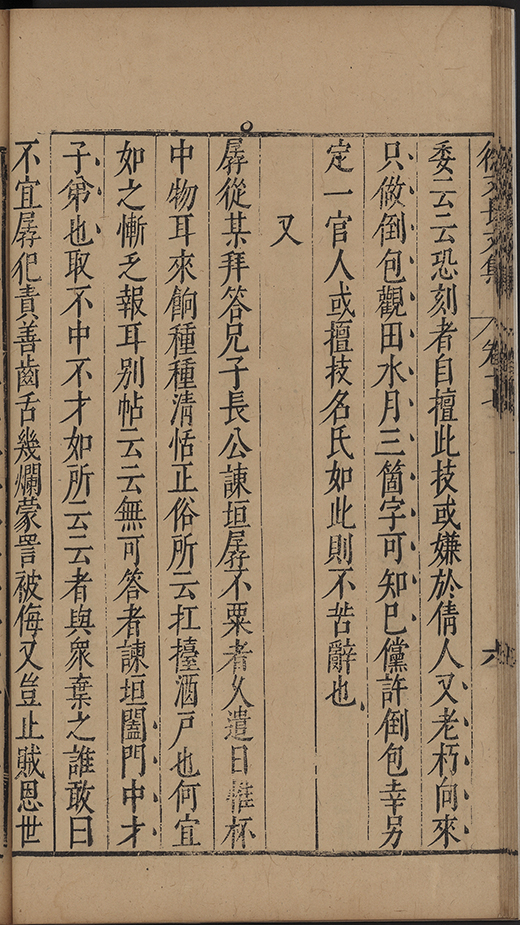 徐文長文集
卷十七
六
委云云恐刻者自擅此技或嫌於倩人又老朽向來
只做倒包觀田水月三箇字可知已儻許倒包幸另
定一官人或擅技名氏如此則不苦辭也
又
孱從某拜答兄子長公諫垣孱不粟者久遣日雜杯
中物耳來餉種種清恬正俗所云扛擡酒戶也何宜
如之慚乏報耳别帖云云無可答者諫垣闔門中才
子弟也取不中不才如所云云者與衆棄之誰敢曰
不宜孱犯責善齒舌幾爛蒙詈被侮又豈止賊恩世